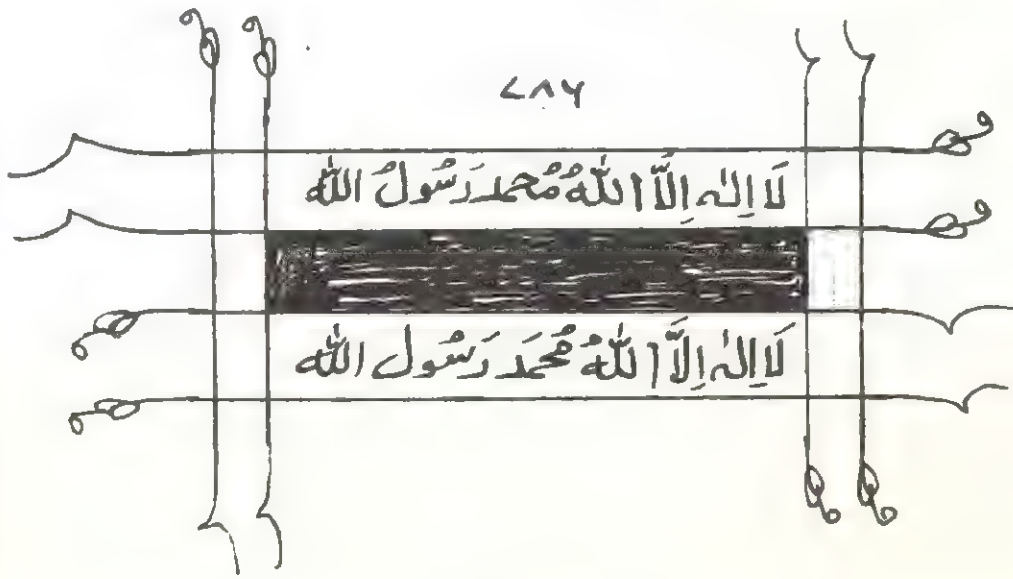 ۷۸۶
لَا اِلٰہ اِلَّا اللّٰهُ مُحمد رَسُولُ اللّٰه
لَا اِلٰہ اِلَّا اللّٰهُ مُحمَد رَسُول اللّٰه